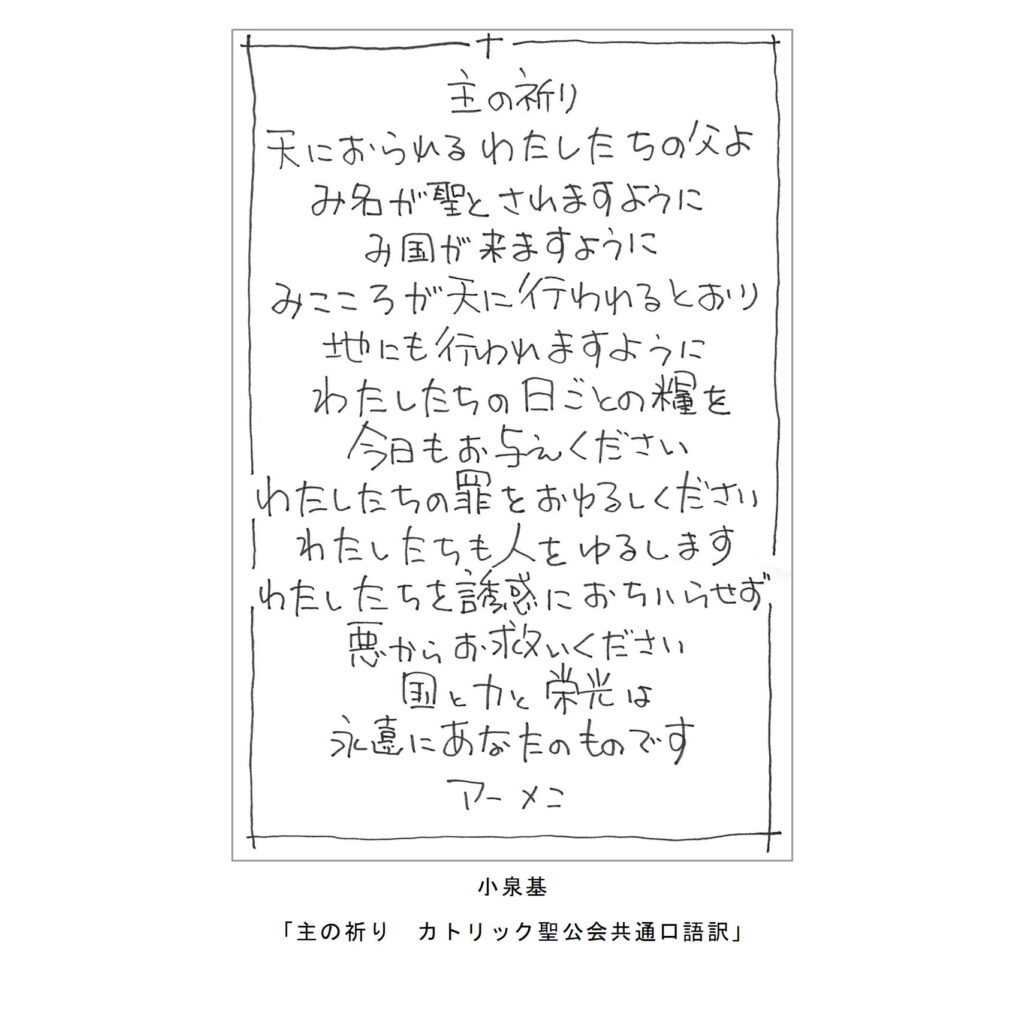 主の祈り
天におられるわたしたちの父よ
み名が聖とされますように
み国が来ますように
みこころが天に行われるとおり
地にも行われますように
わたしたちの日ごとの糧を
今日もお与えください
わたしたちの罪をおゆるしください
わたしたちも人をゆるします
わたしたちを誘惑におちいらせず
悪からお救いください
国と力と栄光は
永遠にあなたのものです
アーメン
小泉基
「主の祈り　カトリック聖公会共通口語訳」